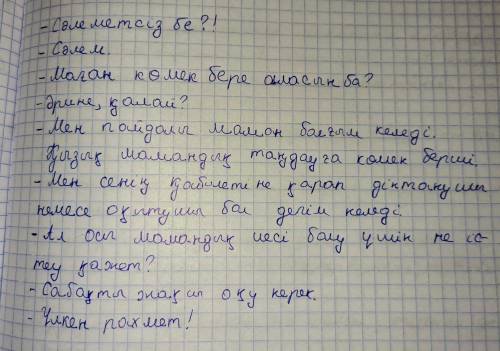 - Сәлеметсіз бе?!
- Сәлем.
- Маған көмек бере аласың ба?
- Әрине, қалай?
- Мен пайдалы маман болғым келеді.
Қызық мамандық таңдауға көмек берші.
- Мен сенің қабілетіңе қарап дінтанушы
немесе оқытушы бол дегім келеді.
- Ал осы мамандық иесі болу үшін не іс-
теу қажет?
- Сабақты жақсы оқу керек.
- Үлкен рахмет!